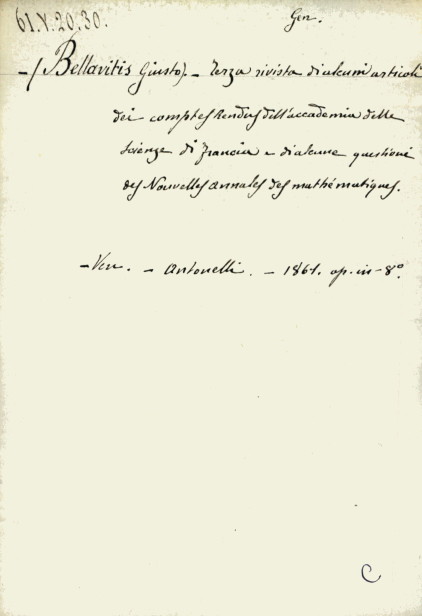 61.V.20.30.
Gen.
-(Bellavitis Giusto).- Terza rivista di alcuni articoli
dei comptes Rendus dell'accademia delle
scienze di francia e di alcune questioni
des Nouvelles annales des mathématiques.
-Ven. - Antonelli. - 1861. op. in-8º.
C